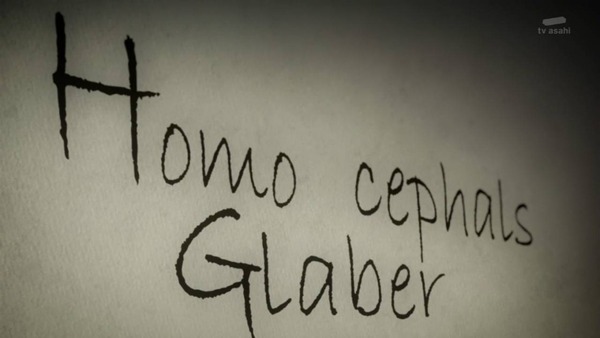 tv asahi
Homo cephals
Glaber